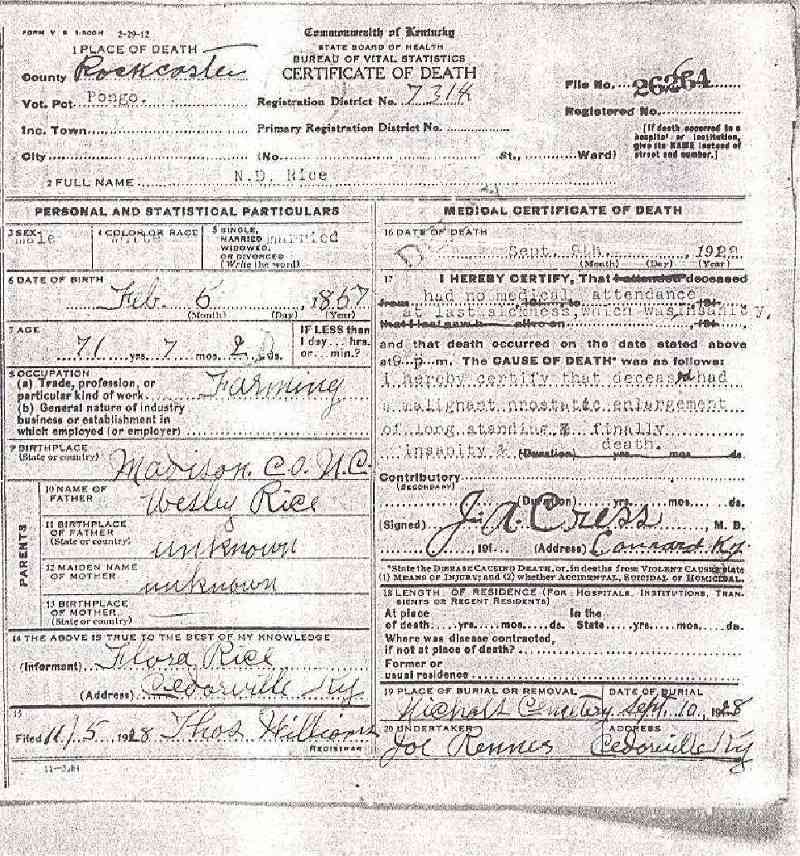 2-29-12
Commonwealth of Kentucky
STATE BOARD OF HEALTH
BUREAU OF VITAL STATISTICS
CERTIFICATE OF DEATH
1 PLACE OF DEATH
County Rockcastle
Vot. Pct Pongo.
Inc. Town
City
Registration District No. 7318
Primary Registration District No.
(No. St., Ward)
File No. 26264
Registered No.
[If death occurred in a
hospital or institution,
give its NAME instead of
street and number.]
2 FULL NAME N.D. Rice
PERSONAL AND STATISTICAL PARTICULARS
3 SEX male
4 COLOR OR RACE white
5 SINGLE, MARRIED WIDOWED, OR DIVORCED (Write the word) married
6 DATE OF BIRTH
Feb. 5, 1857
(Month) (Day) (Year)
7 AGE
71 yrs. 7 mos. 2 ds.
IF LESS than
1 day... hrs.
or... min.?
8 OCCUPATION
(a) Trade, profession, or
particular kind of work Farming
(b) General nature of industry
business or establishment in
which employed (or employer)
9 BIRTHPLACE
(State or country) Madison. CO. N.C.
PARENTS
10 NAME OF
FATHER Wesley Rice
11 BIRTHPLACE
OF FATHER
(State or country) unknown
12 MAIDEN NAME
OF MOTHER unknown
13 BIRTHPLACE
OF MOTHER
(State or country)
14 THE ABOVE IS TRUE TO THE BEST OF MY KNOWLEDGE
(Informant) Flora Rice
(Address) Cedorville Ky
15
Filed 11/5 1928 Thos Williams
REGISTRAR
MEDICAL CERTIFICATE OF DEATH
16 DATE OF DEATH
Sept. 8th, 1928
(Month) (Day) (Year)
17 I HEREBY CERTIFY, That I attended deceased
from had no medical attendance 191
at last sickness, which was insanity,
that I last saw h alive on 191
and that death occurred on the date stated above
at 9 p. m. The CAUSE OF DEATH* was as follows:
I hereby certify that deceased had
a malignant prostatic enlargement
of long standing & finally
insanity & death.
(Duration) yrs. mos. ds.
Contributory
(SECONDARY)
(Duration) yrs. mos. ds.
(Signed) J. A. Cress M. D.
, 191 (Address) Conrard Ky
*State the DISEASE CAUSING DEATH, or, in deaths from VIOLENT CAUSES state
(1) MEANS OF INJURY; and (2) whether ACCIDENTAL, SUICIDAL OR HOMICIDAL.
18 LENGTH OF RESIDENCE (FOR HOSPITALS, INSTITUTIONS, TRANSIENTS OR RECENT RESIDENTS)
At place In the
of death yrs. mos. ds. State yrs. mos. ds.
Where was disease contracted,
if not at place of death?
Former or
usual residence
19 PLACE OF BURIAL OR REMOVAL DATE OF BURIAL
Nichols Cemetery Sept. 10, 1928
20 UNDERTAKER ADDRESS
Joe Rennes Cedorville Ky